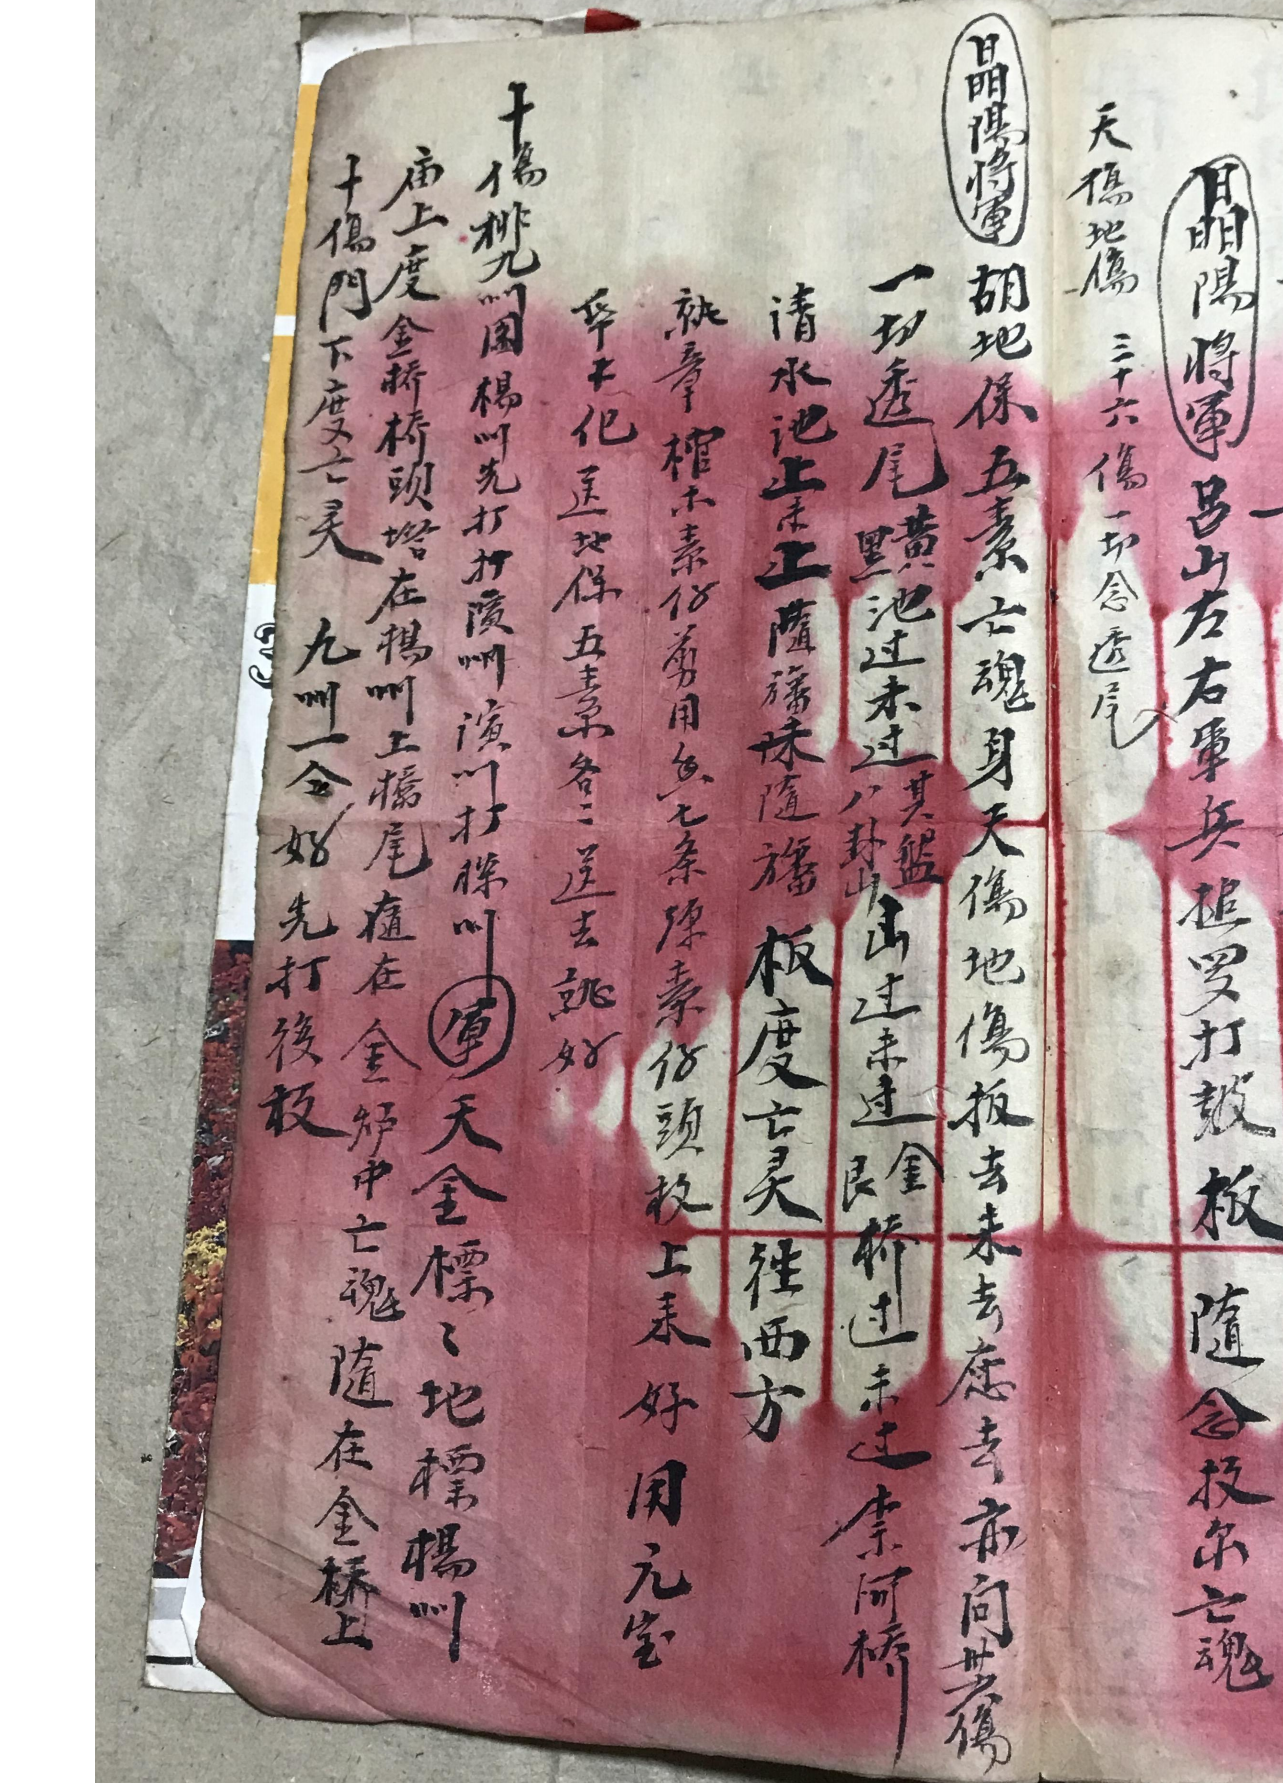 晶陽將軍 呂山左右軍兵搥罗打皷 板 隨念投尔亡魂
天傷地傷 三十六傷 一切念透尾
晶陽將軍 胡地保五素亡魂身天傷地傷扳去未去應去亦向卅六傷
一切透尾 黃黑池过未过 其盤八卦山山过未过 金艮桥过未过 柰河橋
清水池上未上隨旛味隨旛 板度亡灵徃西方
就章 棺木素仔剪用 七条 素仔頭枝上来好 用元宝
化送地保五素各二送去就好
十傷 九州围楊州先打 打廣州 演州打 州 軍 天金標〻地標楊州
庙上度金桥桥頭塔在楊州上橋尾 在金炉中亡魂隨在金橋上
十傷門下度亡灵 九州一念好先打後